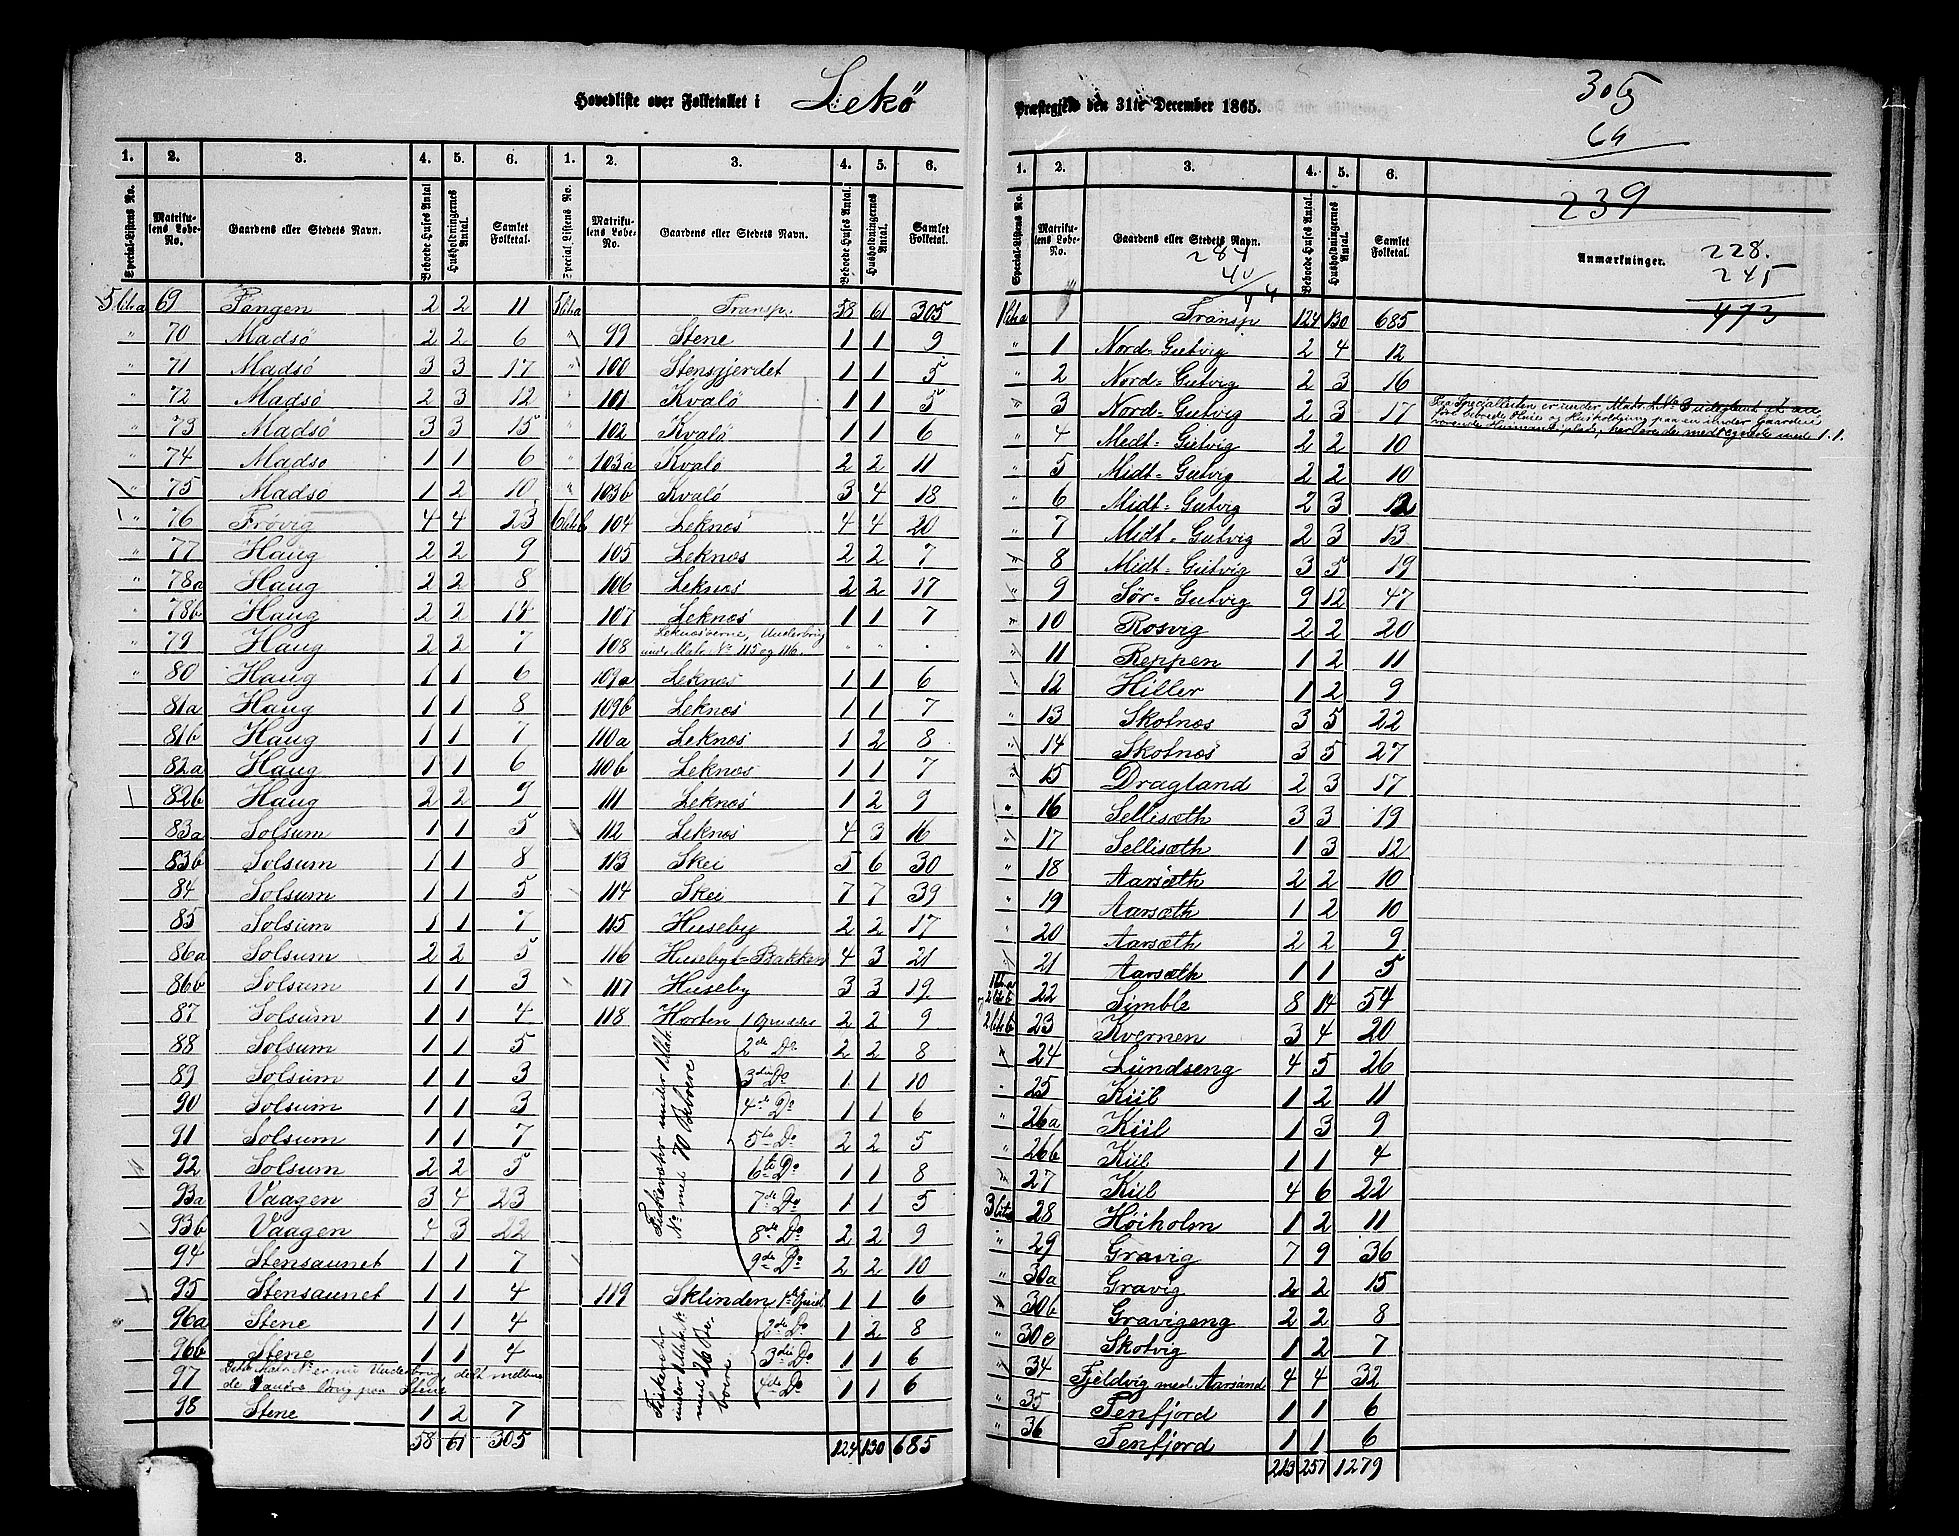 Hovedliste over Folketallet i Lekö Præstegjeld den 31te December 1865.
305
64
239
1. 2. 3. 4. 5. 6. 1. 2. 3. 4. 5. 6.
Special-Listens No. Matrikulens Løbe-No. Gaardens eller Stedets Navn. Beboede Huses Antal. Husholdningernes Antal. Samlet Folketal. Special-Listens No. Matrikulens Løbe-No. Gaardens eller Stedets Navn. Beboede Huses Antal. Husholdningernes Antal. Samlet Folketal.
69 Tangen 2 2 11
" 70 Madsö 2 2 6
" 71 Madsö 3 3 17
" 72 Madsö 2 3 12
" 73 Madsö 3 3 15
" 74 Madsö 1 1 6
" 75 Madsö 1 2 10
" 76 Frøvig 4 4 23
" 77 Haug 2 2 9
" 78a Haug 2 2 8
" 78b Haug 2 2 14
" 79 Haug 2 2 7
" 80 Haug 1 1 6
81a Haug 1 1 8
81b Haug 1 1 7
82a Haug 1 1 6
82b Haug 2 2 9
83a Solsum 1 1 5
83b Solsum 1 1 8
84 Solsum 1 1 5
85 Solsum 1 1 7
86a Solsum 2 2 5
86b Solsum 1 1 3
87 Solsum 1 1 4
88 Solsum 1 1 5
89 Solsum 1 1 3
90 Solsum 1 1 3
91 Solsum 1 1 7
92 Solsum 2 2 5
93a Vaagen 3 4 23
93b Vaagen 4 3 22
94 Stensaunet 1 1 7
95 Stensaunet 1 1 4
96a Stene 1 1 4
96b Stene 1 1 4
97 Dette Matr. No er nu Underbrug, delt mellem
de andre Brug paa Stene
98 Stene 1 2 7
58 61 305
Transp. 58 61 305
" 99 Stene 1 1 9
" 100 Stensgjerdet 1 1 5
" 101 Kvalö 1 1 5
" 102 Kvalö 1 1 6
" 103a Kvalö 2 2 11
" 103b Kvalö 3 4 18
104 Leknæs 4 4 20
105 Leknæs 2 2 7
106 Leknæs 2 2 17
107 Leknæs 1 1 7
108 Leknæsøerne, Underbrug
under Matr. No 115 og 116. " " "
109a Leknæs 1 1 6
109b Leknæs 1 1 7
110a Leknæs 1 2 8
110b Leknæs 1 1 7
111 Leknæs 1 2 9
112 Leknæs 4 3 16
113 Skei 5 6 30
114 Skei 7 7 39
115 Huseby 2 2 17
116 Huseby-Bakken 4 3 21
117 Huseby 3 3 19
118 Horten 2 2 9
Fiskevær under 1 Matr.
No med 70 Beboere
2de Do 2 2 8
3die Do 1 1 10
4de Do 1 1 6
5te Do 2 2 5
6te Do 1 1 8
7de Do 1 1 5
8de Do 2 2 9
9de Do 2 2 10
119 Sklinden 1 1 6
Fiskevær
under 1 Matr. No
med 26 Be-
boere
2de Do 1 2 8
3die Do 1 1 6
4de Do 1 1 6
124 130 685
1. 2. 3. 4. 5. 6.
Special-Listens No. Matrikulens Løbe-No. Gaardens eller Stedets Navn. Beboede Huses Antal. Husholdningernes Antal. Samlet Folketal. Anmærkninger.
284
40
44
228.
245
473
Transp 124 130 685
" 1 Nord-Gutvig 2 4 12
" 2 Nord-Gutvig 2 3 16
" 3 Nord-Gutvig 2 3 17
" 4 Medt-Gutvig 2 2 10
" 5 Midt-Gutvig 2 2 10
" 6 Midt-Gutvig 2 3 12
" 7 Midt-Gutvig 2 3 13
" 8 Midt-Gutvig 3 5 19
" 9 Sør-Gutvig 9 12 47
" 10 Rosvig 2 2 20
" 11 Reppen 1 2 11
" 12 Hiller 1 2 9
" 13 Skotnæs 3 5 22
" 14 Skotnæs 3 5 27
" 15 Dragland 2 3 17
" 16 Sellisæth 3 3 19
" 17 Sellisæth 1 3 12
" 18 Aarsæth 2 2 10
" 19 Aarsæth 1 2 10
" 20 Aarsæth 2 2 9
" 21 Aarsæth 1 1 5
22 Simble 8 14 54
23 Kvernen 3 4 20
" 24 Lundseng 4 5 26
" 25 Kiil 1 2 11
" 26a Kiil 1 3 9
" 26b Kiil 1 1 4
" 27 Kiil 4 6 22
28 Høiholm 1 2 11
" 29 Gravig 7 9 36
" 30a Gravig 2 2 15
" 30b Gravigeng 2 2 8
" 30c Skotvig 1 2 7
" 34 Fjeldvig med Aarsand 4 4 32
" 35 Tenfjord 1 1 6
" 36 Tenfjord 1 1 6
213 257 1279